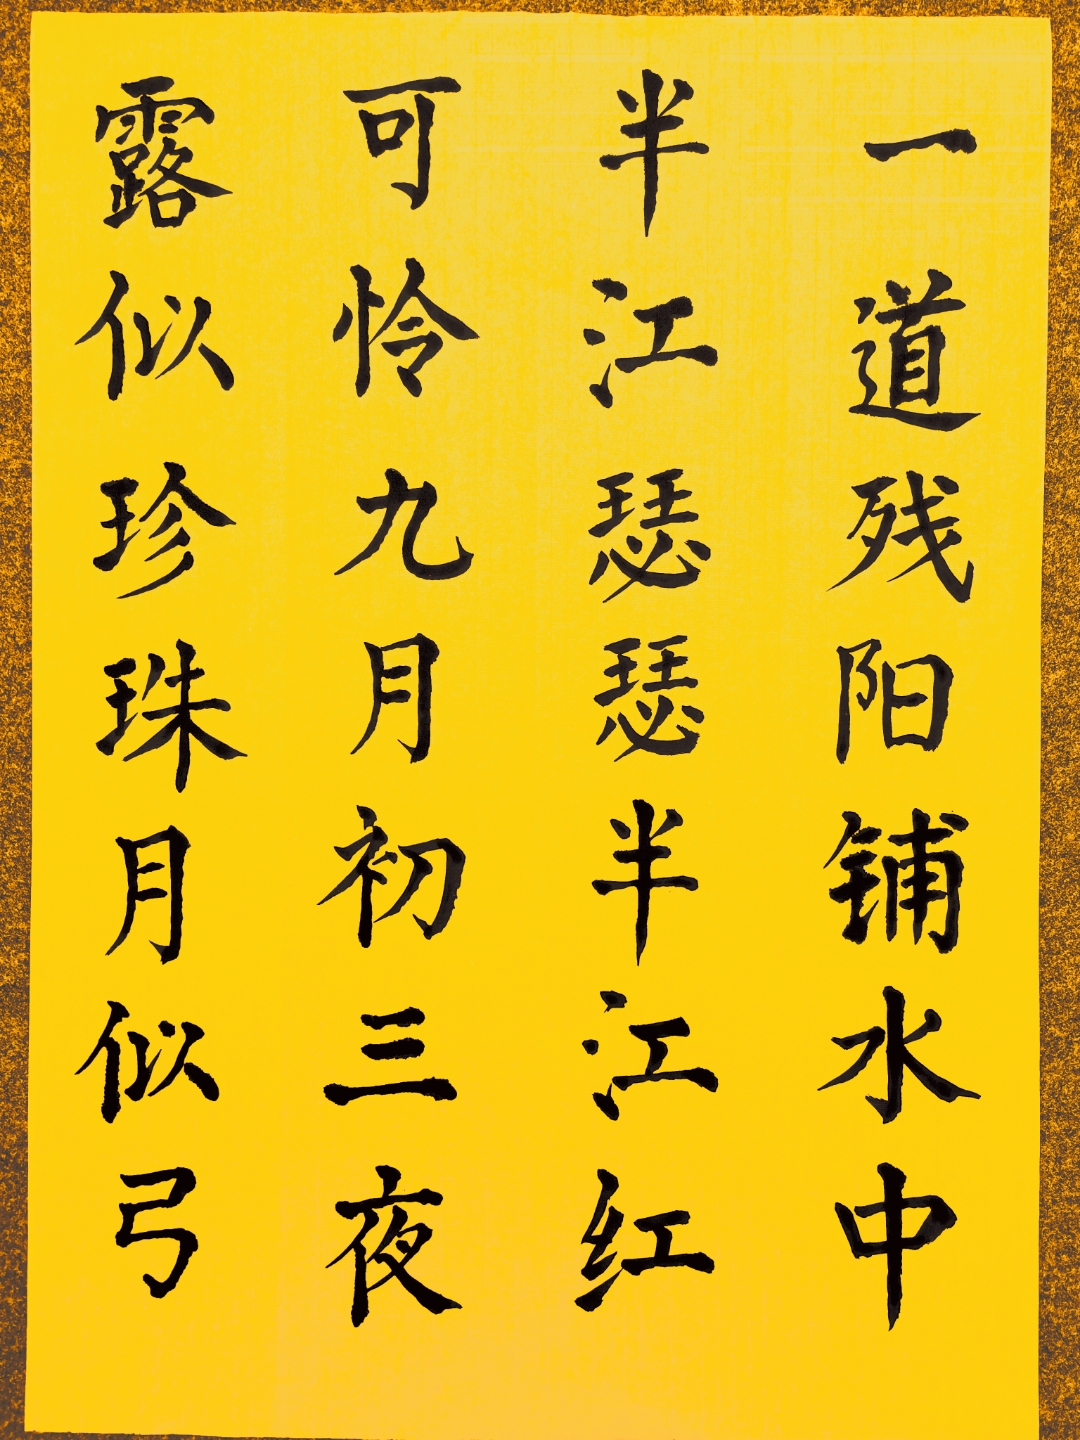 一道残阳铺水中
半江瑟瑟半江红
可怜九月初三夜
露似珍珠月似弓